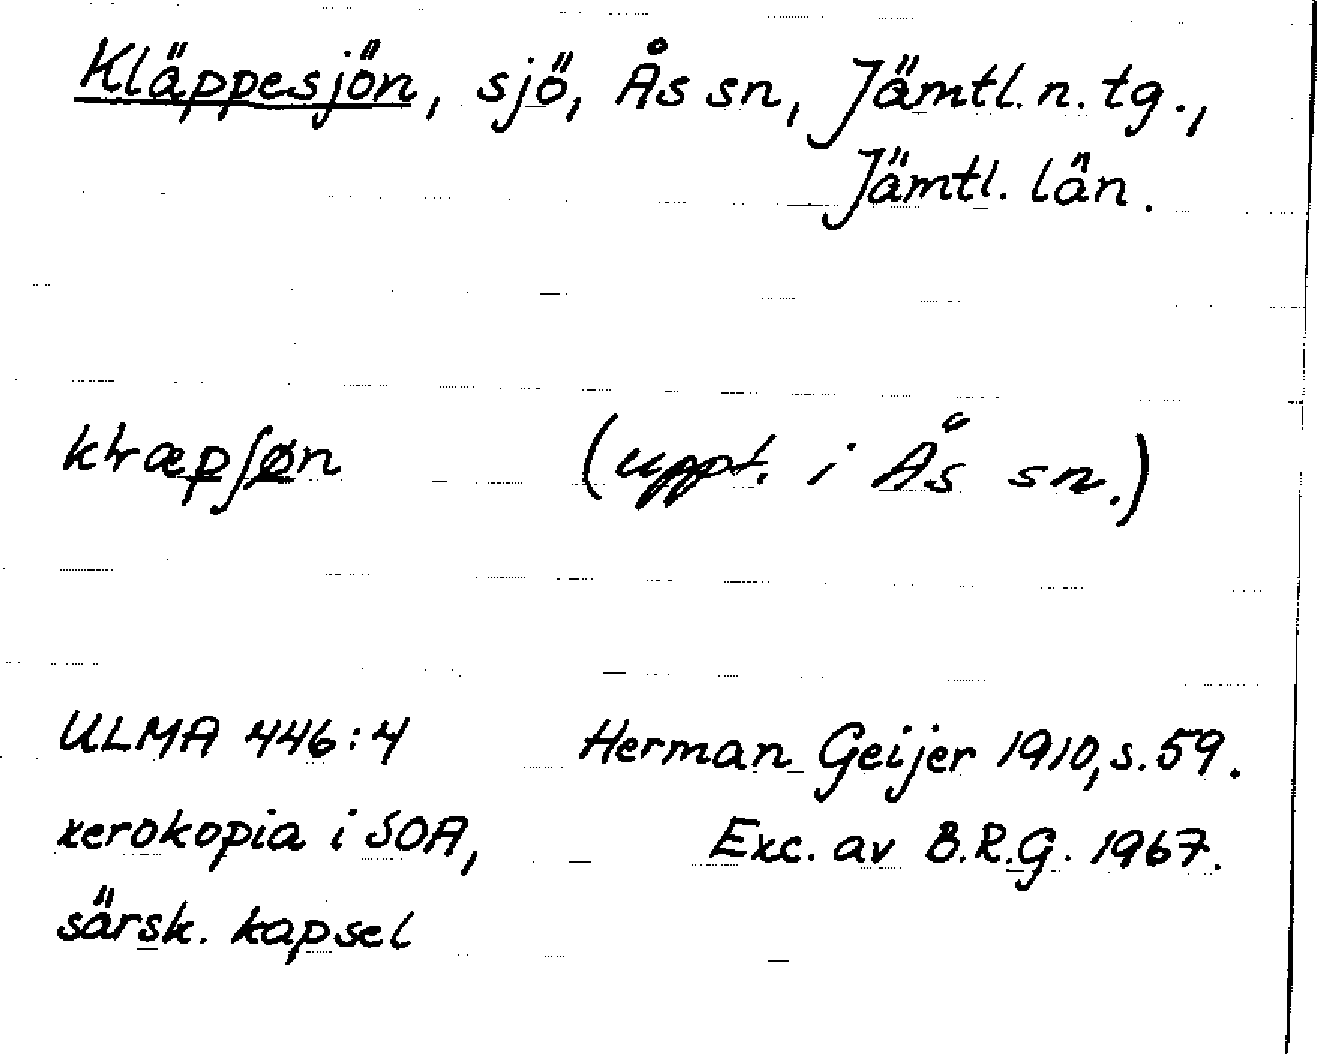 Kläppesjön, sjö, Ås sn, Jämtl. n. tg.,
Jämtl. län.
(uppt. i Ås sn.)
ULMA 446:4 Herman Geijer 1910, s. 59.
xerokopia i SOA, Exc. av B.R.G. 1967.
särsk. kapsel